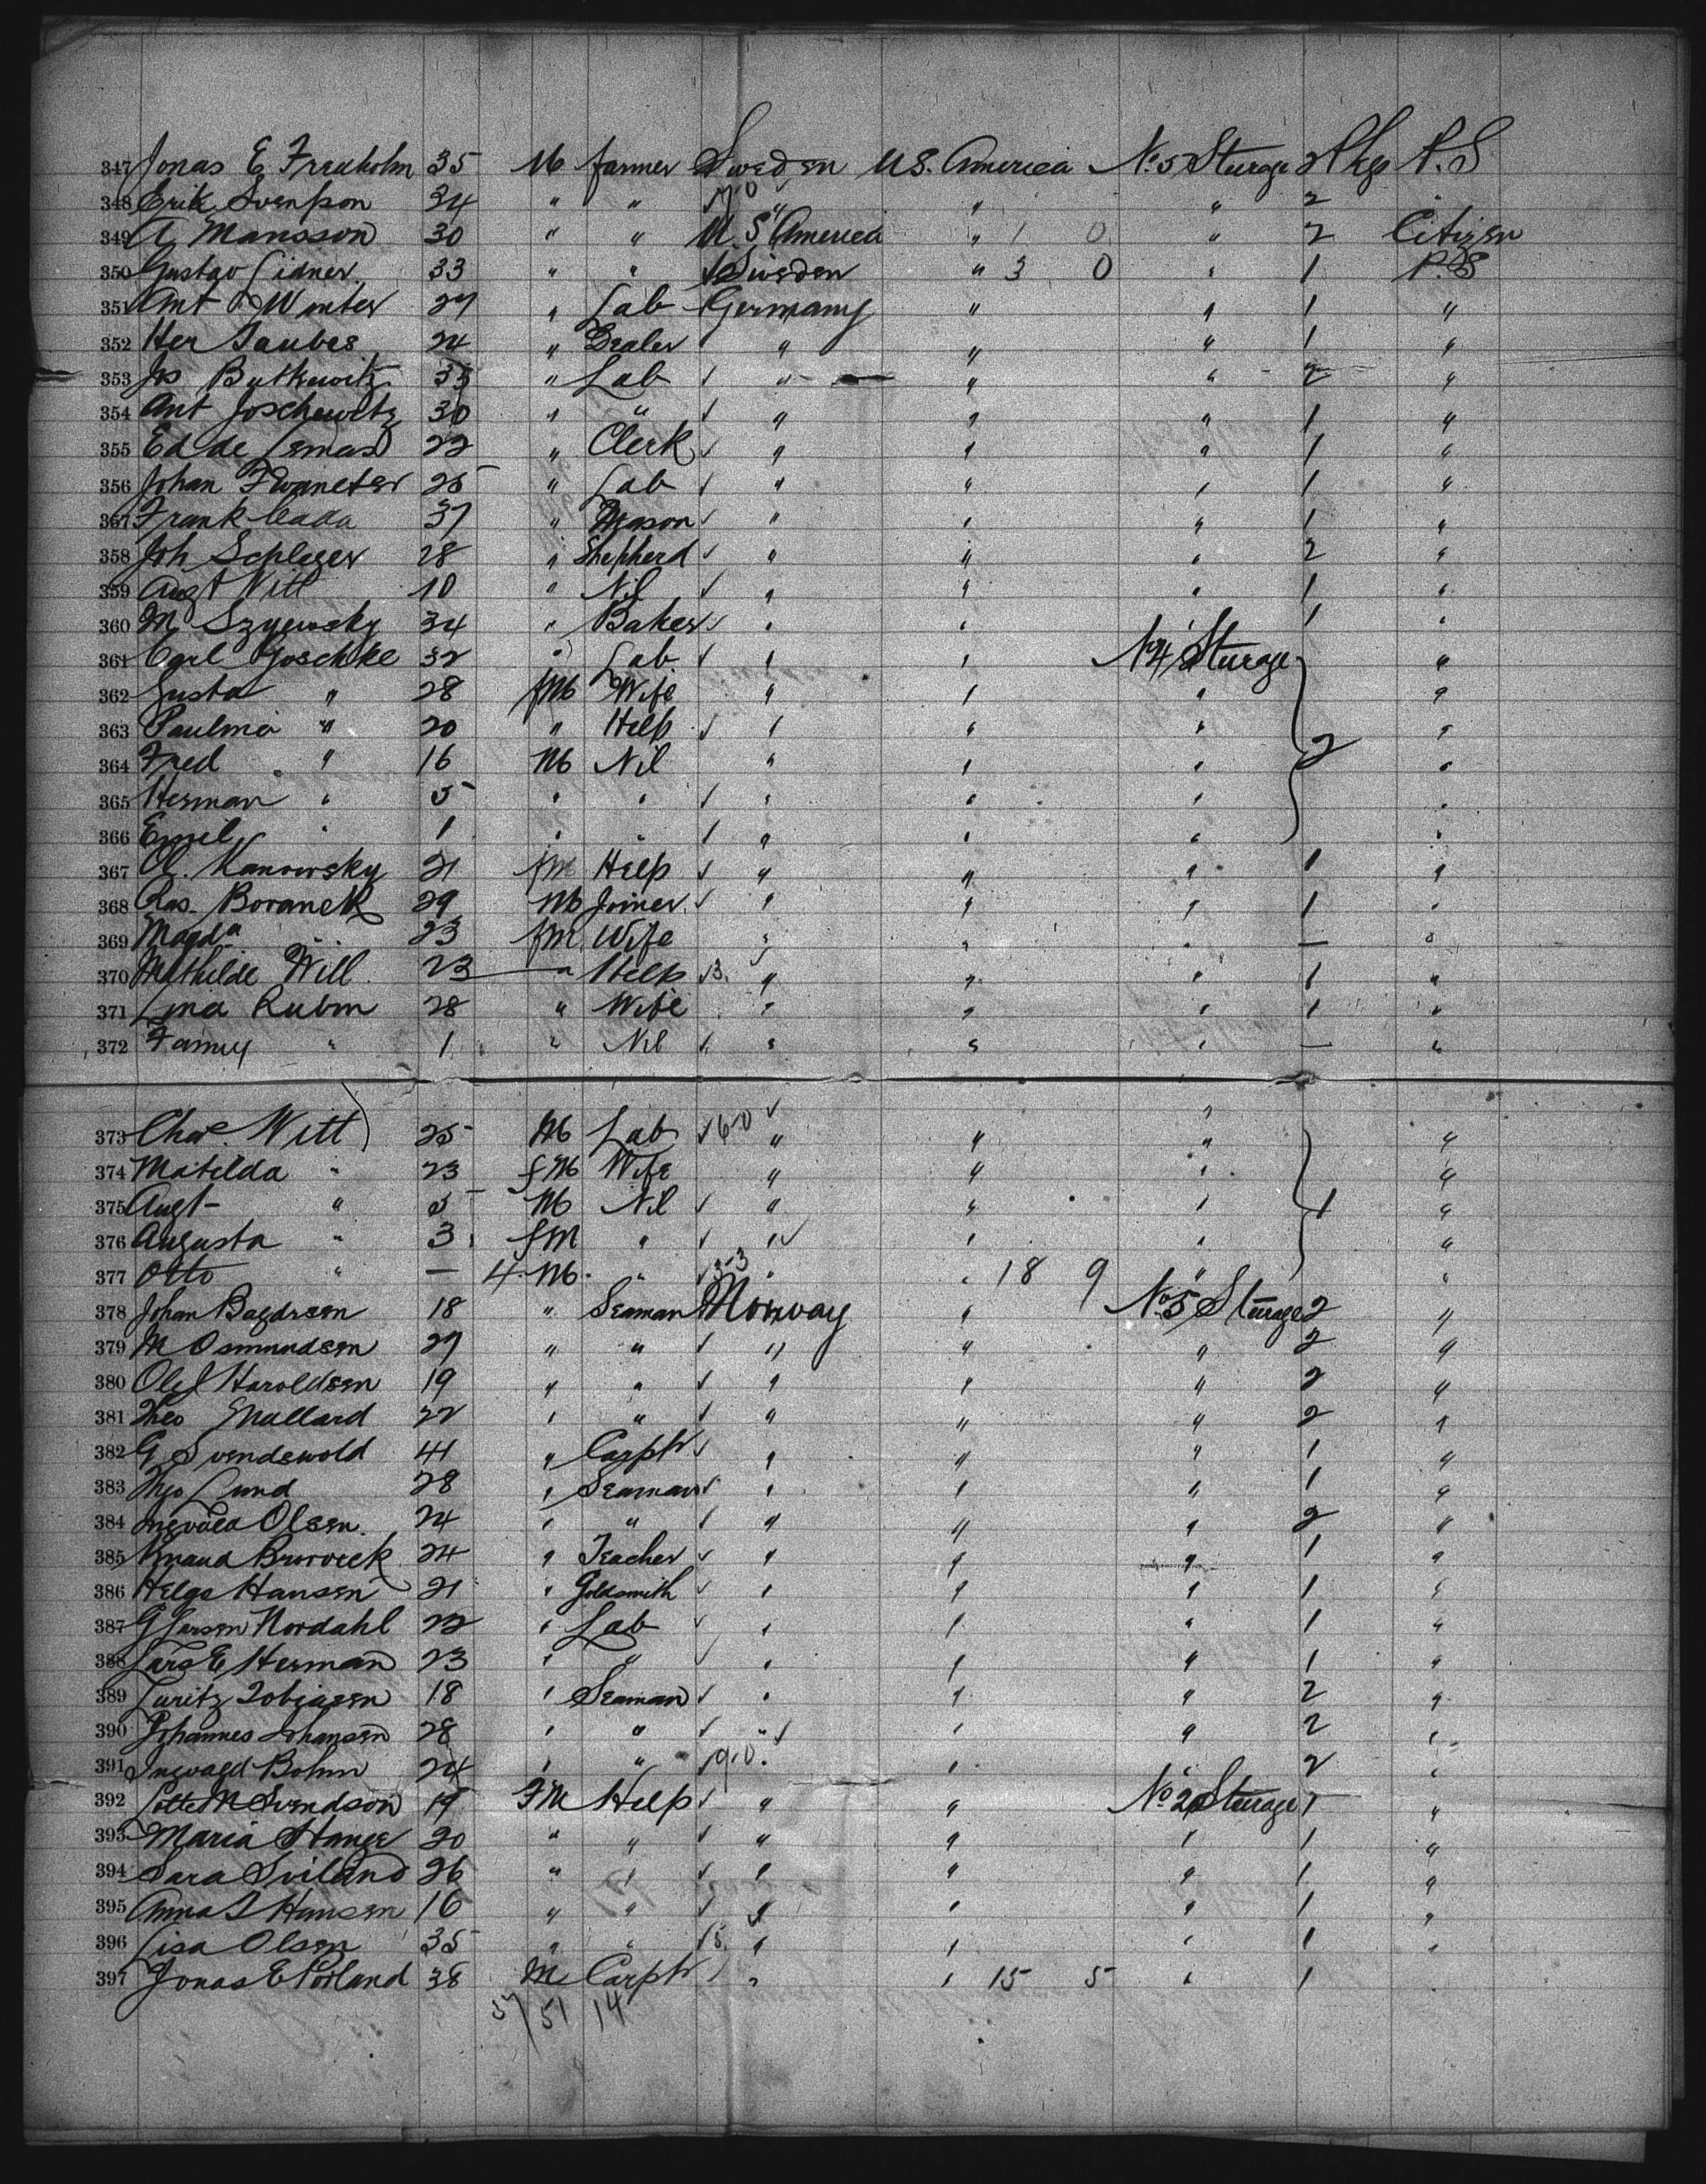 347 Jonas E. Freuholm 35 M farmer Sweden U.S. America No 5 Sturage 2 Pkgs P.S
348 Erik Svenſson 34 " " " " " 2 "
349 A Mansson 30 " " U.S America " 1 0 " 2 Citizen
350 Gustav Lidner 33 " " Sweden " 3 0 " 1 P.S
351 Ant Winter 27 " Lab Germany " " 1 "
352 Her Taubes 24 " Dealer " " " 1 "
353 Js Butkewitz 35 " Lab " " " 2 "
354 Ant Joschewitz 30 " " " " " 1 "
355 Ed de Lemas 22 " Clerk " " " 1 "
356 Johan 25 " Lab " " " 1 "
357 Frank Cada 37 " Mason " " " 1 "
358 Joh Schleger 28 " Shepherd " " " 2 "
359 Augt Witt 10 " Nil " " " 1 "
360 M Szyewsky 34 " Baker " " " 1 "
361 Carl Joschke 32 " Lab " " No 4 Sturage "
362 Gusta " 28 fM Wife " " " "
363 Paulina " 20 " Help " " " "
364 Fred " 16 M Nil " " " 2 "
365 Herman " 5 " " " " " "
366 Emil " 1 " " " " " "
367 Ol. Kanowsky 21 fM Help " " " 1 "
368 Boranek 29 M Joiner " " " 1 "
369 Magda " 23 fM Wife " " " — "
370 Mathilde Will 23 " Help 3 " " " 1 "
371 Lina Rubin 28 " Wife " " " 1 "
372 Fanny " 1 " Nil " " " — "
373 Chas. Witt 25 M Lab 6-0 " " " "
374 Matilda " 23 fM Wife " " " "
375 Augt " 5 M Nil " " " 1 "
376 Augusta " 3 fM " " " " "
377 Otto " — 4 M " 3-3 " " 18 9 " "
378 Johan Bagdrsen 18 " Seaman Norway " No 5 Sturage 2 "
379 M Osmundsen 27 " " " " " 2 "
380 Olef Haroldsen 19 " " " " " 2 "
381 Theo Mallard 22 " " " " " 2 "
382 G Svendswold 41 " Carptr " " " 1 "
383 Theo Lund 28 " Seaman " " " 1 "
384 Olsen 24 " " " " " 2 "
385 24 " Teacher " " " 1 "
386 Helge Hansen 21 " Goldsmith " " " 1 "
387 G Larsen Nordahl 22 " Lab " " " 1 "
388 Lars E Herman 23 " " " " " 1 "
389 Luritz Tobiasen 18 " Seaman " " " 2 "
390 Johannes Johansen 28 " " " " " 2 "
391 Ingvald Bohm 24 " " 9.0 " " " 2 "
392 Lotte M Svendson 19 FM Help " " No 2 Sturage 1 "
393 Maria Hauge 20 " " " " " 1 "
394 Sara Sviland 26 " " " " " 1 "
395 Anna S Hansen 16 " " " " " 1 "
396 Lisa Olsen 35 " " 5 " " " 1 "
397 Jonas E Norland 38 M Carptr " " 15 5 " 1
37/51 14